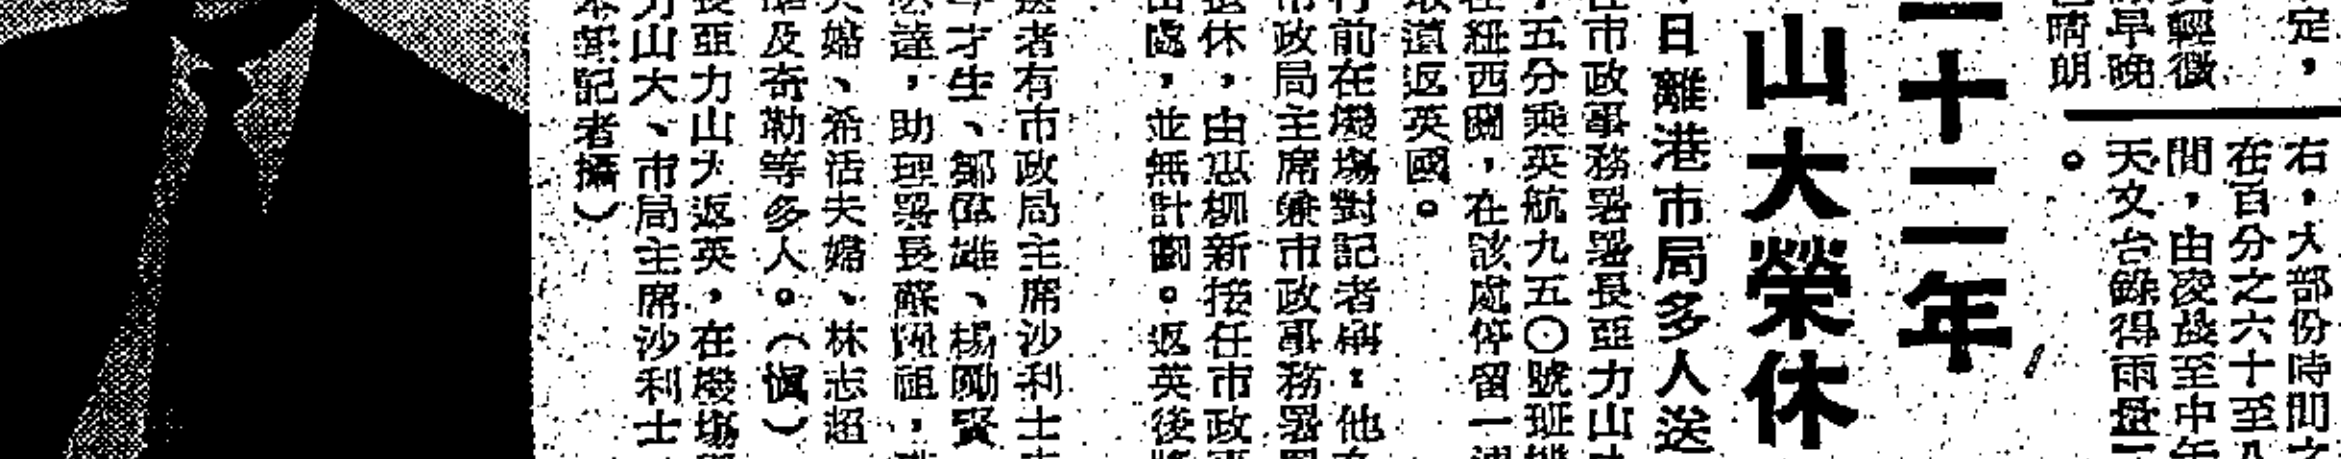 定，
輕微
早晚
晴朗
右，大部份時間之
在百分之六十至八
間，由凌晨至中午
天文台錄得雨量
。
二十二年
山大榮休
日離港市局多人送
市政事務署署長亞力山大
五分乘英航九五〇號班機
在紐西蘭，在該處停留一週
取道返英國。
行前在機塲對記者稱：他
市政局主席兼市政事務署署
退休，由思柳新接任市政
處，並無計劃。返英後將
送者有市政局主席沙利士
年才生、鄒偉雄、楊勵賢
達，助理署長蘇國祖，
夫婦、希活夫婦、林志超
及奇勒等多人。（愼）
長亞力山大返英，在機塲
力山大、市局主席沙利士
本報記者攝）